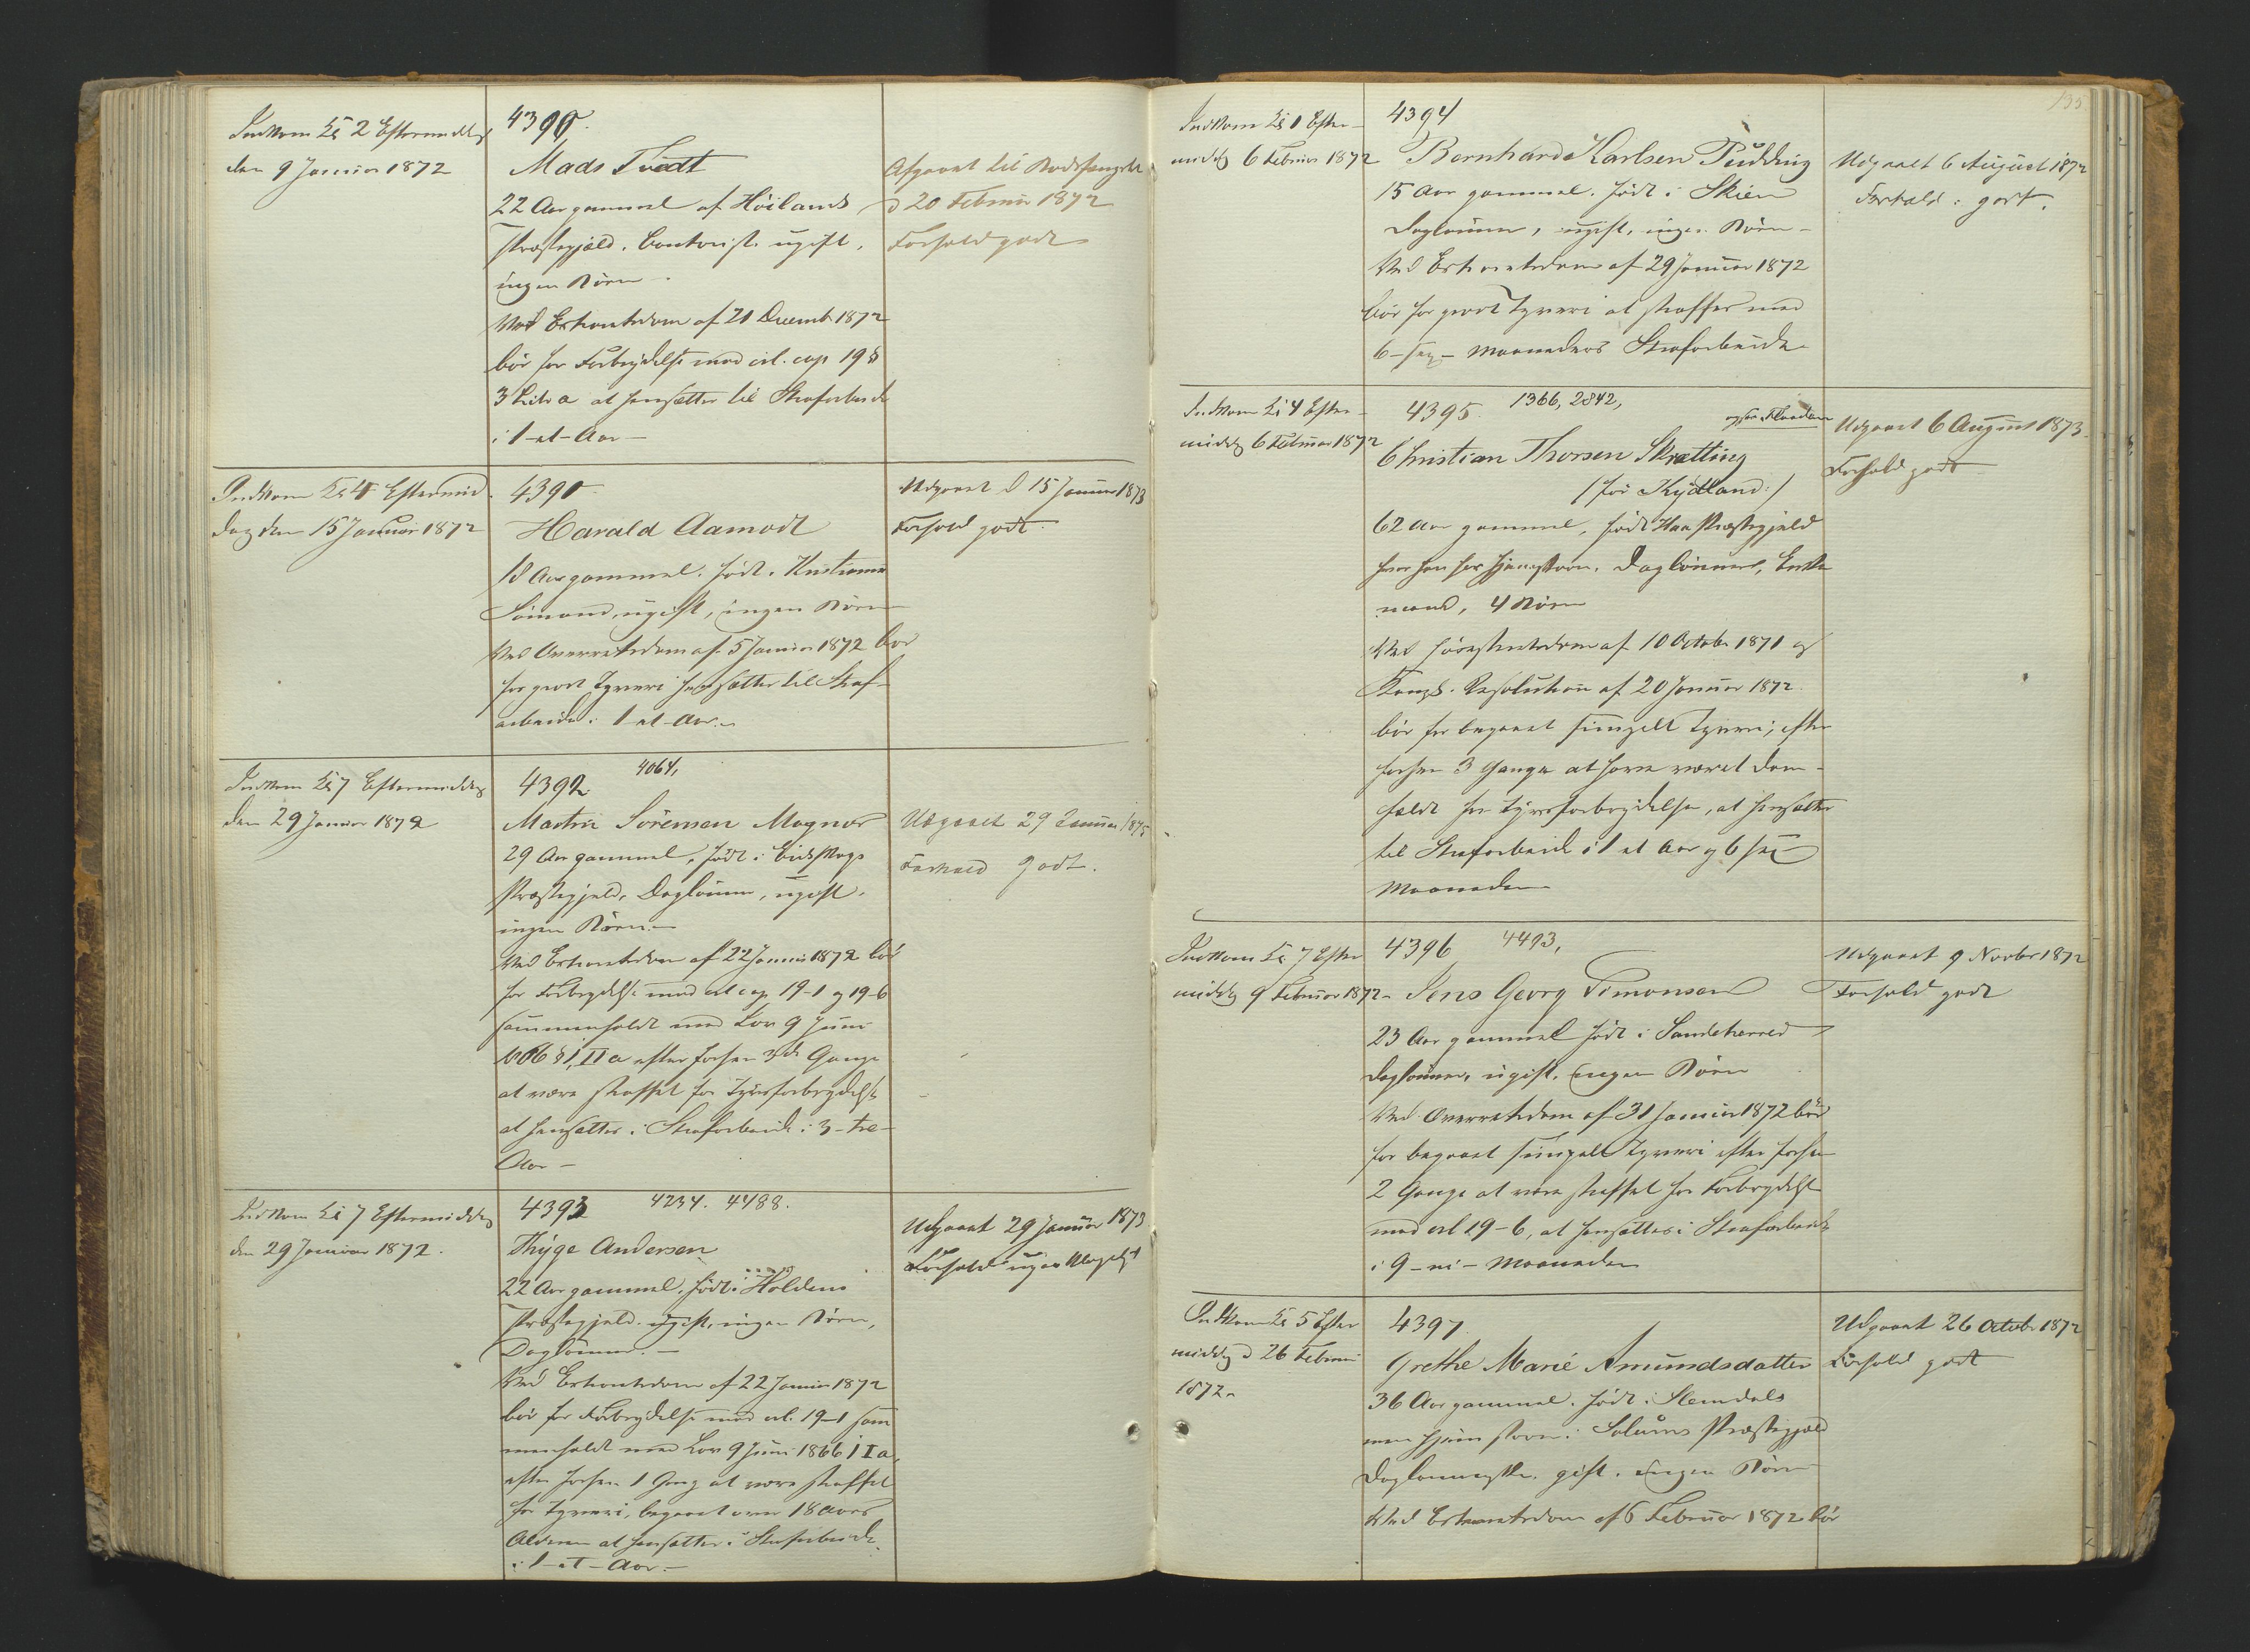 Indkom Kl 2 Eftermiddag
den 9 Januar 1872
4390.
Mads Tvedt
22 Aar gammel af Höilands
Præstegjeld. Contorist. ugift,
ingen Børn.
Ved Extraretsdom af 21 Decemb 1872
bör for Forbrydelse mod crl. cap 19 §
3 Litr a at hensættes til Strafarbeide
i 1 - et - Aar -
Afgaaet til Bodsfængslet
d 20 Februar 1872
Forhold godt
Indkom Kl 4 Eftermid
dag den 15 Januar 1872
4391
Harald Aamodt
18 Aar gammel. født i Kristiania
Sömand, ugift, ingen Børn
Ved Overretsdom af 5 Januar 1872 bör
for grovt Tyveri hensættes til Straf-
arbeide i 1 - et - Aar. -
Udgaaet d 15 Januar 1873
Forhold godt.
Indkom Kl 7 Eftermiddag
den 29 Januar 1872
4392 4064,
Martin Sörensen Magnor
29 Aar gammel, født i Eidskogs
Præstegjeld, Daglönner, ugift.
ingen Børn. -
Ved Extraretsdom af 22 Januar 1872 bör
for Forbrydelse mod crl cap 19-1 og 19-6
sammenholdt med Lov 9 Juni
1866 § 1, II a efter forhen 3de Gange
at være straffet for Tyvsforbrydelse
at hensættes i Strafarbeide i 3 - tre -
Aar -
Udgaaet 29 Januar 1875
Forhold godt.
Indkom Kl 7 Eftermiddag
den 29 Januar 1872.
4393 4234. 4488.
Thyge Andersen
22 Aar gammel, født i Holdens
Præstegjeld. ugift, ingen Børn,
Daglönner. -
Ved Extraretsdom af 22 Januar 1872
bör for Forbrydelse mod crl. 19-1 sam
menholdt med Lov 9 Juni 1866 1 I a,
efter forhen 1 Gang at være straffet
for Tyveri, begaaet over 18 Aars
Alderen at hensættes i Strafarbeide
i 1 - et - Aar. -
Udgaaet 29 Januar 1873
Forhold
135
Indkom Kl 1 Efter-
middag 6 Februar 1872
4394
Bernhard Karlsen Pudding
15 Aar gammel. født i Skien
Daglönner, ugift, ingen Børn -
Ved Extraretsdom af 29 Januar 1872
bör for grovt Tyveri at straffes med
6 - sex - Maaneders Strafarbeide
Udgaaet 6 August 1872
Forhold: godt.
Indkom Kl 4 Efter-
middag 6 Februar 1872
4395. 1366, 2842,
Christian Thorsen Skratting
/ för Kydland: /
62 Aar gammel, født Haa Præstegjeld
hvor han har Hjemstavn. Daglönner, Enke
mand, 4 Børn
Ved Höiesteretsdom af 10 October 1871 og
Kongl. Resolution af 20 Januar 1872.
bör for begaaet simpelt Tyveri, efter
forhen 3 Gange at have været dom-
fældt for Tyvsforbrydelse, at hensættes
til Strafarbeide i 1 et Aar og 6 sex
Maaneder
Udgaaet 6 August 1873.
Forhold godt
Indkom Kl 7 Efter
middag 9 Februar 1872 -
4396 4493,
Jens Georg Simonsen
23 Aar gammel født i Sandeherred
Daglönner, ugift. Ingen Børn
Ved Overretsdom af 31 Januar 1872 bör
for begaaet simpelt Tyveri efter forhen
2 Gange at være straffet for Forbrydelse
mod crl 19-6, at hensættes i Strafarbeide
i 9 - ni - Maaneder
Udgaaet 9 Novbr 1872
Forhold godt
Indkom Kl 5 Efter
middag d 26 Februar
1872.
4397.
Grethe Marie Amundsdatter
36 Aar gammel. født i Slemdals
men Hjemstavn i Solums Præstegjeld
Daglönnerske. gift. Ingen Børn
Ved Extraretsdom af 6 Februar 1872 bör
Udgaaet 26 Octobr 1872
Forhold godt